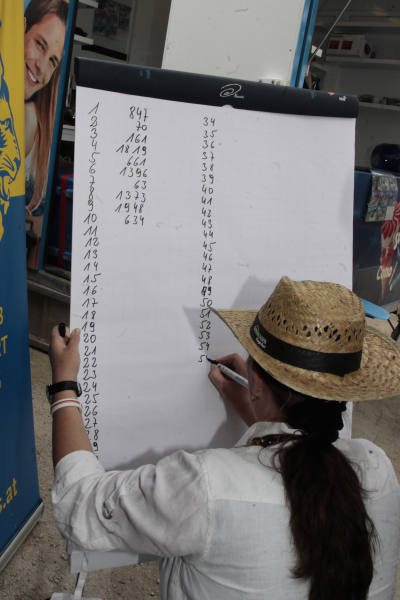 1 847
2 70
3 161
4 1819
5 661
6 1396
7 63
8 1373
9 1948
10 634
11
12
13
14
15
16
17
18
19
20
21
22
23
24
25
26
27
28
29
34
35
36
37
38
39
40
41
42
43
44
45
46
47
48
49
50
51
52
53
54
5
s.at